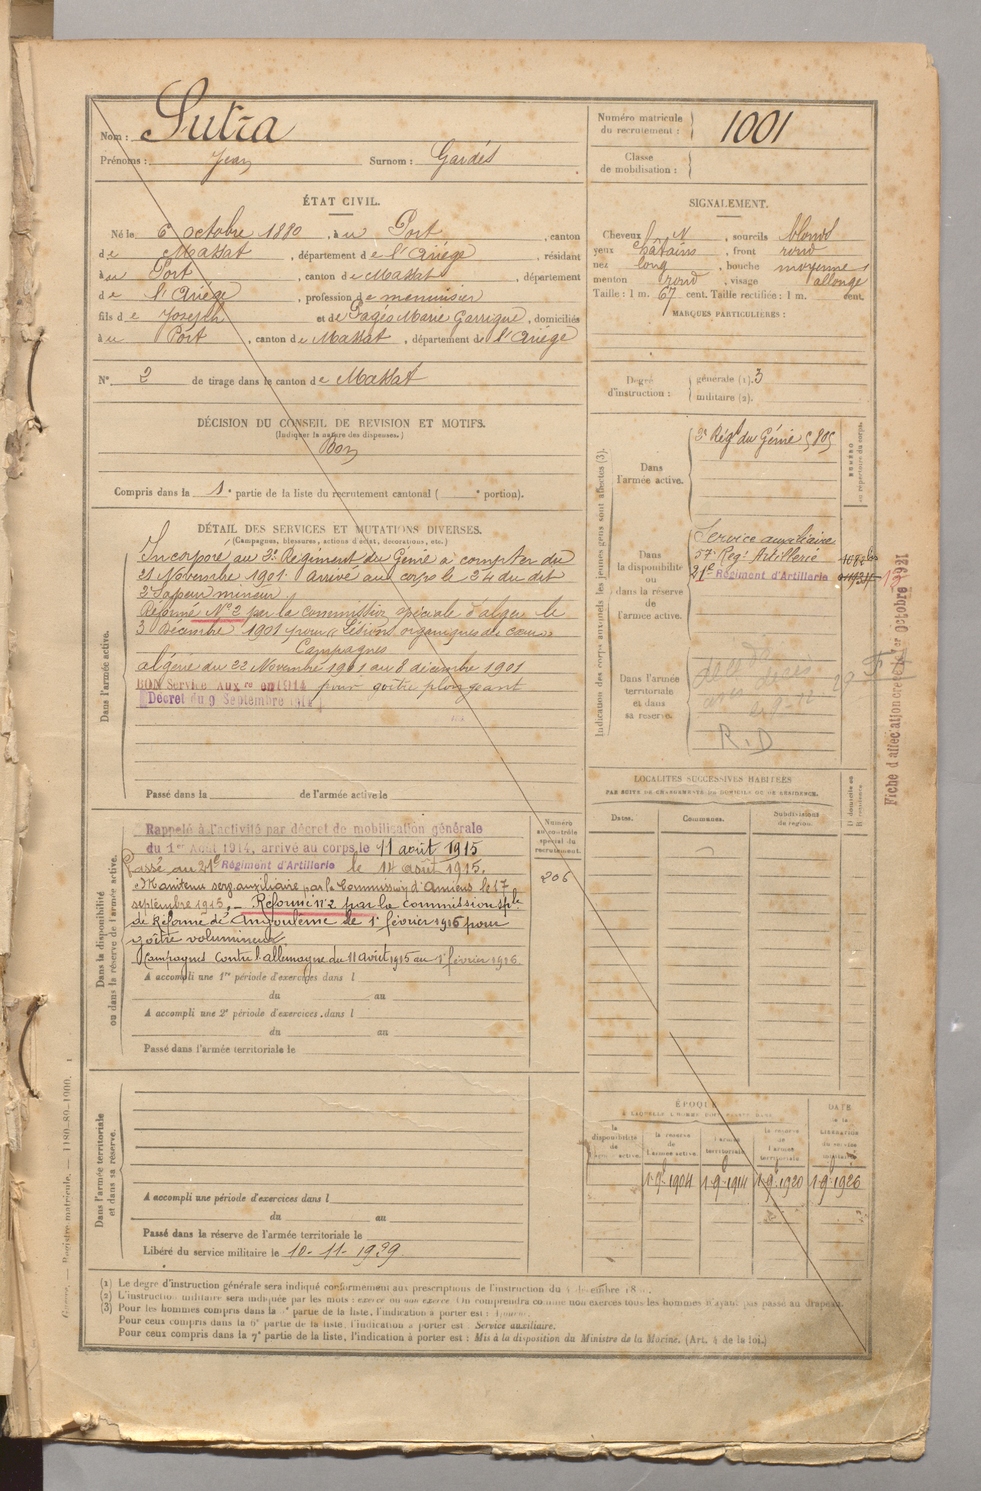 Nom : Sutra
Prénoms : Jean Surnom : Gardès
Numéro matricule du recrutement : 1001
Classe de mobilisation :
ÉTAT CIVIL.
Né le 6 octobre 1880, à u Port, canton
de Massat, département de l'Ariège, résidant
à u Port, canton de Massat, département
de l'Ariège, profession de menuisier
fils de Joseph et de Pagès Marie Garrigue, domiciliés
à u Port, canton de Massat, département de l'Ariège
N° 2 de tirage dans le canton de Massat
SIGNALEMENT.
Cheveux et sourcils blonds
yeux châtains, front rond
nez long, bouche moyenne
menton rond, visage allongé
Taille : 1 m. 67 cent. Taille rectifiée : 1 m. cent.
MARQUES PARTICULIÈRES :
Degré d'instruction : générale (1). 3
militaire (2).
DÉCISION DU CONSEIL DE REVISION ET MOTIFS.
(Indiquer la nature des dispenses.)
Bon
Compris dans la 1e partie de la liste du recrutement cantonal ( e portion).
DÉTAIL DES SERVICES ET MUTATIONS DIVERSES.
(Campagnes, blessures, actions d'éclat, décorations, etc.)
Dans l'armée active.
Incorporé au 3e Régiment du Génie à compter du
21 Novembre 1901. Arrivé au corps le 24 du dit
2e Sapeur mineur.
Réformé N° 2 par la commission spéciale d'alger le
3 Décembre 1901 pour "Lésions organiques du cœur"
Campagnes
algérie du 22 Novembre 1901 au 8 décembre 1901
BON Service Auxre en 1914 pour goitre plongeant
Décret du 9 Septembre 1914
Passé dans la de l'armée active le
Indication des corps auxquels les jeunes gens sont affectés (3).
Dans l'armée active. 3e Régt du Génie
Dans la disponibilité ou dans la réserve de l'armée active.
Service auxiliaire
57e Régt Artillerie
21e Régiment d'Artillerie
Dans l'armée territoriale et dans sa réserve.
R.D
NUMÉRO au répertoire du corps.
Fiche d'affectation créée le 1er Octobre 1921
LOCALITÉS SUCCESSIVES HABITÉES
PAR SUITE DE CHANGEMENTS DE DOMICILE OU DE RÉSIDENCE.
Dates. Communes. Subdivisions de région. D domicile ou R résidence.
Dans la disponibilité ou dans la réserve de l'armée active.
Numéro au contrôle spécial du recrutement.
206
Rappelé à l'activité par décret de mobilisation générale
du 1er Août 1914, arrivé au corps le 11 août 1915
Passé au 21e Régiment d'Artillerie le 14 août 1915.
Maintenu serv. auxiliaire par la Commission d'Amiens le 17
septembre 1915. – Réformé n°2 par la commission sple
de Réforme de Angoulème le 1er février 1916 pour
goître volumineux.
Campagnes contre l'allemagne du 11 août 1915 au 1er février 1916.
A accompli une 1re période d'exercices dans l
du au
A accompli une 2e période d'exercices dans l
du au
Passé dans l'armée territoriale le
Dans l'armée territoriale et dans sa réserve.
A accompli une période d'exercices dans l
du au
Passé dans la réserve de l'armée territoriale le
Libéré du service militaire le 10-11-1939
ÉPOQUE
À LAQUELLE L'HOMME DOIT PASSER DANS
la disponibilité de l'armée active. la réserve de l'armée active. l'armée territoriale. la réserve de l'armée territoriale. DATE de la LIBÉRATION du service militaire.
1-9-1904 1-9-1914 1-9-1920 1-9-1926
(1) Le degré d'instruction générale sera indiqué conformément aux prescriptions de l'instruction du
(2) L'instruction militaire sera indiquée par les mots : exercé ou non exercé. On comprendra comme non exercés tous les hommes n'ayant pas passé au drapeau.
(3) Pour les hommes compris dans la partie de la liste, l'indication à porter est :
Pour ceux compris dans la 6e partie de la liste, l'indication à porter est : Service auxiliaire.
Pour ceux compris dans la 7e partie de la liste, l'indication à porter est : Mis à la disposition du Ministre de la Marine. (Art. 4 de la loi.)
Registre matricule. — 1180-89-1000.